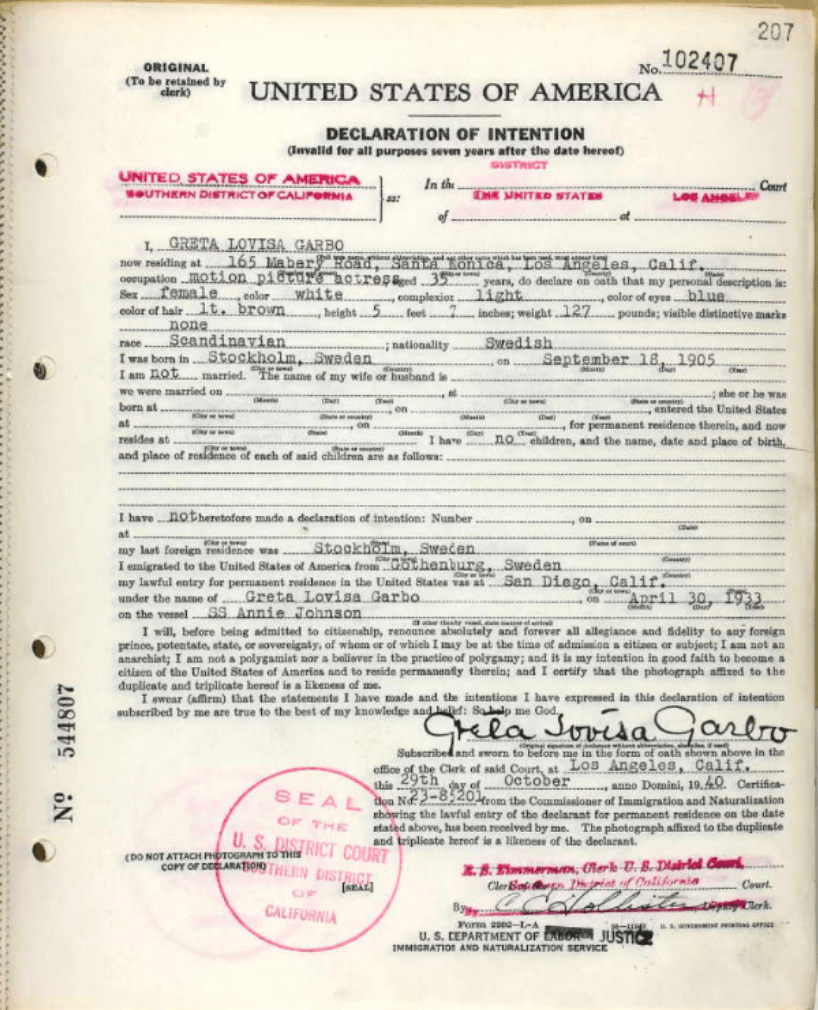 207
ORIGINAL
(To be retained by
clerk)
No. 102407
UNITED STATES OF AMERICA
DECLARATION OF INTENTION
(Invalid for all purposes seven years after the date hereof)
DISTRICT
UNITED STATES OF AMERICA
SOUTHERN DISTRICT OF CALIFORNIA
ss:
In the THE UNITED STATES LOS ANGELES Court
of at
I, GRETA LOVISA GARBO
now residing at 165 Mabery Road, Santa Monica, Los Angeles, Calif.
occupation motion picture actress aged 35 years, do declare on oath that my personal description is:
Sex female, color white, complexion light, color of eyes blue
color of hair lt. brown, height 5 feet 7 inches; weight 127 pounds; visible distinctive marks
none
race Scandinavian; nationality Swedish
I was born in Stockholm, Sweden, on September 18, 1905
(City or town) (Country) (Month) (Day) (Year)
I am not married. The name of my wife or husband is
we were married on, at; she or he was
(Month) (Day) (Year) (City or town) (State or country)
born at, on, entered the United States
(City or town) (State or country) (Month) (Day) (Year)
at, on, for permanent residence therein, and now
(City or town) (State) (Month) (Day) (Year)
resides at I have no children, and the name, date and place of birth,
(City or town) (State or country)
and place of residence of each of said children are as follows:
I have not heretofore made a declaration of intention: Number, on
(Date)
at
(City or town) (State) (Name of court)
my last foreign residence was Stockholm, Sweden
(City or town) (Country)
I emigrated to the United States of America from Gothenburg, Sweden
(City or town) (Country)
my lawful entry for permanent residence in the United States was at San Diego, Calif.
(City or town) (State)
under the name of Greta Lovisa Garbo, on April 30, 1933
(Month) (Day) (Year)
on the vessel SS Annie Johnson
(If other than by vessel, state manner of arrival)
I will, before being admitted to citizenship, renounce absolutely and forever all allegiance and fidelity to any foreign
prince, potentate, state, or sovereignty, of whom or of which I may be at the time of admission a citizen or subject; I am not an
anarchist; I am not a polygamist nor a believer in the practice of polygamy; and it is my intention in good faith to become a
citizen of the United States of America and to reside permanently therein; and I certify that the photograph affixed to the
duplicate and triplicate hereof is a likeness of me.
I swear (affirm) that the statements I have made and the intentions I have expressed in this declaration of intention
subscribed by me are true to the best of my knowledge and belief: So help me God.
Greta Lovisa Garbo
(Original signature of declarant without abbreviation, also alias, if used)
Subscribed and sworn to before me in the form of oath shown above in the
office of the Clerk of said Court, at Los Angeles, Calif.
this 29th day of October, anno Domini, 19 40. Certifica-
tion No 23-85201 from the Commissioner of Immigration and Naturalization
showing the lawful entry of the declarant for permanent residence on the date
stated above, has been received by me. The photograph affixed to the duplicate
and triplicate hereof is a likeness of the declarant.
Nº 544807
SEAL
OF THE
U. S. DISTRICT COURT
SOUTHERN DISTRICT
OF
CALIFORNIA
(DO NOT ATTACH PHOTOGRAPH TO THIS
COPY OF DECLARATION)
[SEAL]
R. S. Zimmerman, Clerk U. S. District Court,
Clerk of the Southern District of California Court.
By C C Hollister Deputy Clerk.
Form 2202—L-A
U. S. GOVERNMENT PRINTING OFFICE
U. S. DEPARTMENT OF LABOR JUSTICE
IMMIGRATION AND NATURALIZATION SERVICE